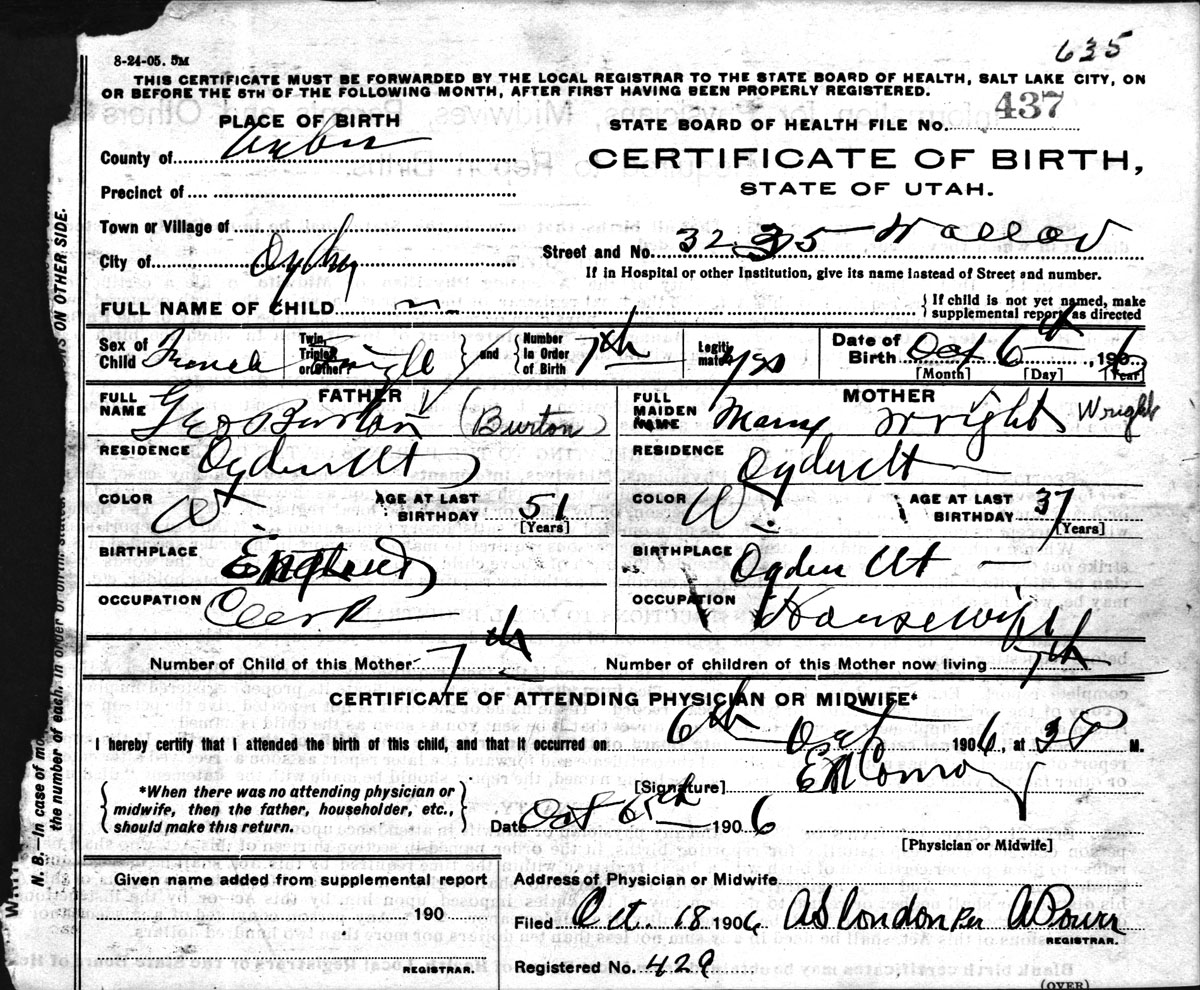 635
8-24-05. 5M
THIS CERTIFICATE MUST BE FORWARDED BY THE LOCAL REGISTRAR TO THE STATE BOARD OF HEALTH, SALT LAKE CITY, ON
OR BEFORE THE 5TH OF THE FOLLOWING MONTH, AFTER FIRST HAVING BEEN PROPERLY REGISTERED.
PLACE OF BIRTH
STATE BOARD OF HEALTH FILE No. 437
County of
CERTIFICATE OF BIRTH,
STATE OF UTAH.
Precinct of
Town or Village of
Street and No.
City of Ogden
If in Hospital or other Institution, give its name instead of Street and number.
FULL NAME OF CHILD
{ If child is not yet named, make
supplemental report as directed
Sex of Child
Twin, Triplet or Other Single } and { Number in Order of Birth 7th
Legitimate? yes
Date of Birth Oct 6th 1906
[Month] [Day] [Year]
FATHER
FULL NAME Geo Burton (Burton)
RESIDENCE Ogden Ut
COLOR W
AGE AT LAST BIRTHDAY 51
[Years]
BIRTHPLACE England
OCCUPATION Clerk
MOTHER
FULL MAIDEN NAME Mary Wright Wright
RESIDENCE Ogden Ut
COLOR W
AGE AT LAST BIRTHDAY 37
[Years]
BIRTHPLACE Ogden Ut
OCCUPATION Housewife
Number of Child of this Mother 7th
Number of children of this Mother now living 7th
CERTIFICATE OF ATTENDING PHYSICIAN OR MIDWIFE*
I hereby certify that I attended the birth of this child, and that it occurred on 6th Oct 1906, at 3 P M.
*When there was no attending physician or
midwife, then the father, householder, etc.,
should make this return.
[Signature] E M Conroy
Date Oct 1906
[Physician or Midwife]
Given name added from supplemental report
190
REGISTRAR.
Address of Physician or Midwife
Filed Oct. 18 1906 Per A Power
REGISTRAR.
Registered No. 429
(OVER)
N. B.—In case of mo
the number of each, in order of birth, stated
NS ON OTHER SIDE.